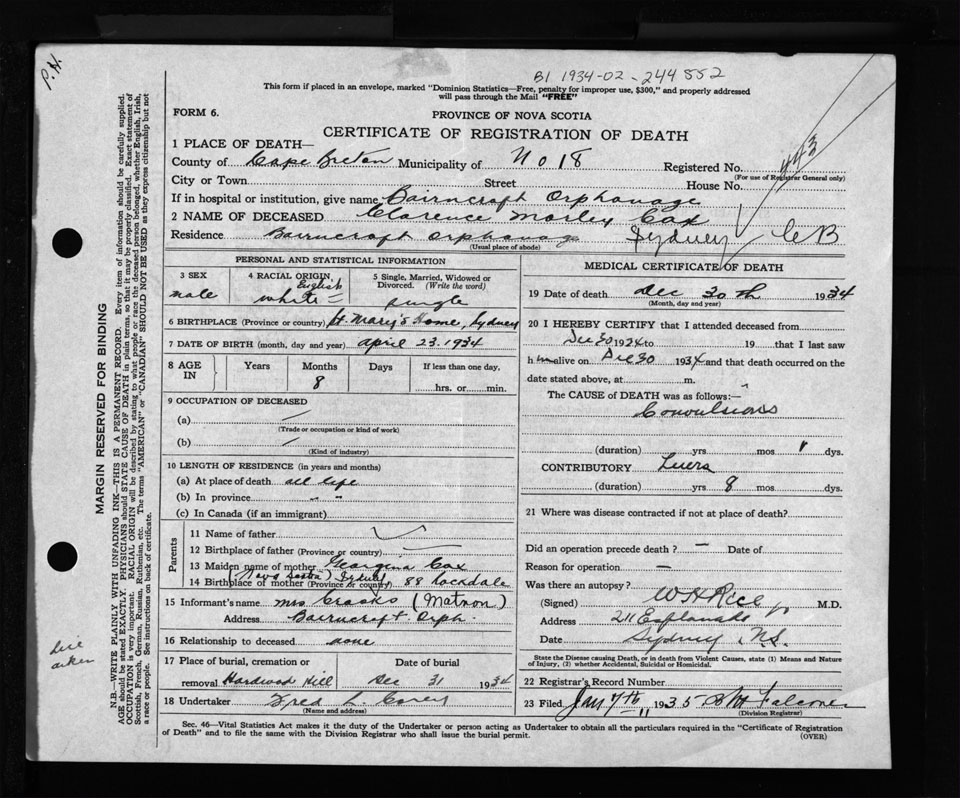 P.H.
B1 1934-02-244852
This form if placed in an envelope, marked "Dominion Statistics—Free, penalty for improper use, $300," and properly addressed
will pass through the Mail "FREE"
FORM 6.
PROVINCE OF NOVA SCOTIA
CERTIFICATE OF REGISTRATION OF DEATH
443
1 PLACE OF DEATH—
County of Cape Breton Municipality of No 18 Registered No.
(For use of Registrar General only)
City or Town Street House No.
If in hospital or institution, give name Bairncroft Orphanage
2 NAME OF DECEASED Clarence Morley Cox
Residence Bairncroft Orphanage Sydney CB
(Usual place of abode)
PERSONAL AND STATISTICAL INFORMATION
3 SEX
male
4 RACIAL ORIGIN
English
white —
5 Single, Married, Widowed or
Divorced. (Write the word)
single
6 BIRTHPLACE (Province or country) St. Mary's Home, Sydney
7 DATE OF BIRTH (month, day and year) April 23. 1934
8 AGE
IN
Years Months Days If less than one day.
8 hrs. or min.
9 OCCUPATION OF DECEASED
(a) —
(Trade or occupation or kind of work)
(b) —
(Kind of industry)
10 LENGTH OF RESIDENCE (in years and months)
(a) At place of death all life
(b) In province " "
(c) In Canada (if an immigrant)
Parents
11 Name of father
12 Birthplace of father (Province or country)
13 Maiden name of mother Georgina Cox
14 Birthplace of mother (Province or country) (Nova Scotia) Sydney 88 Rockdale
15 Informant's name Mrs Crooks (Matron)
Address Bairncroft Orph.
16 Relationship to deceased none
17 Place of burial, cremation or Date of burial
removal Hardwood Hill Dec 31 1934
18 Undertaker Fred L. Corey
(Name and address)
MEDICAL CERTIFICATE OF DEATH
19 Date of death Dec 30th 1934
(Month, day and year)
20 I HEREBY CERTIFY that I attended deceased from
Dec 30 1934 to 19 that I last saw
h im alive on Dec 30 1934 and that death occurred on the
date stated above, at m.
The CAUSE of DEATH was as follows:—
Convulsions
(duration) yrs mos 1 dys.
CONTRIBUTORY
(duration) yrs 8 mos dys.
21 Where was disease contracted if not at place of death?
Did an operation precede death? — Date of
Reason for operation —
Was there an autopsy?
(Signed) W H Rice M.D.
Address 211 Esplanade
Date Sydney N.S.
State the Disease causing Death, or in death from Violent Causes, state (1) Means and Nature
of Injury, (2) whether Accidental, Suicidal or Homicidal.
22 Registrar's Record Number
23 Filed Jan 7th 1935
(Division Registrar)
Sec. 46—Vital Statistics Act makes it the duty of the Undertaker or person acting as Undertaker to obtain all the particulars required in the "Certificate of Registration
of Death" and to file the same with the Division Registrar who shall issue the burial permit.
(OVER)
MARGIN RESERVED FOR BINDING
N.B.—WRITE PLAINLY WITH UNFADING INK—THIS IS A PERMANENT RECORD. Every item of information should be carefully supplied.
AGE should be stated EXACTLY. PHYSICIANS should STATE CAUSE OF DEATH in plain terms, so that it may be properly classified. Exact statement of
OCCUPATION is very important. RACIAL ORIGIN will be described by stating to what people or race the deceased person belonged, whether English, Irish,
Scottish, French, German, Russian, Ruthenian, etc. The terms "AMERICAN" or "CANADIAN" SHOULD NOT BE USED as they express citizenship but not
a race or people. See instructions on back of certificate.